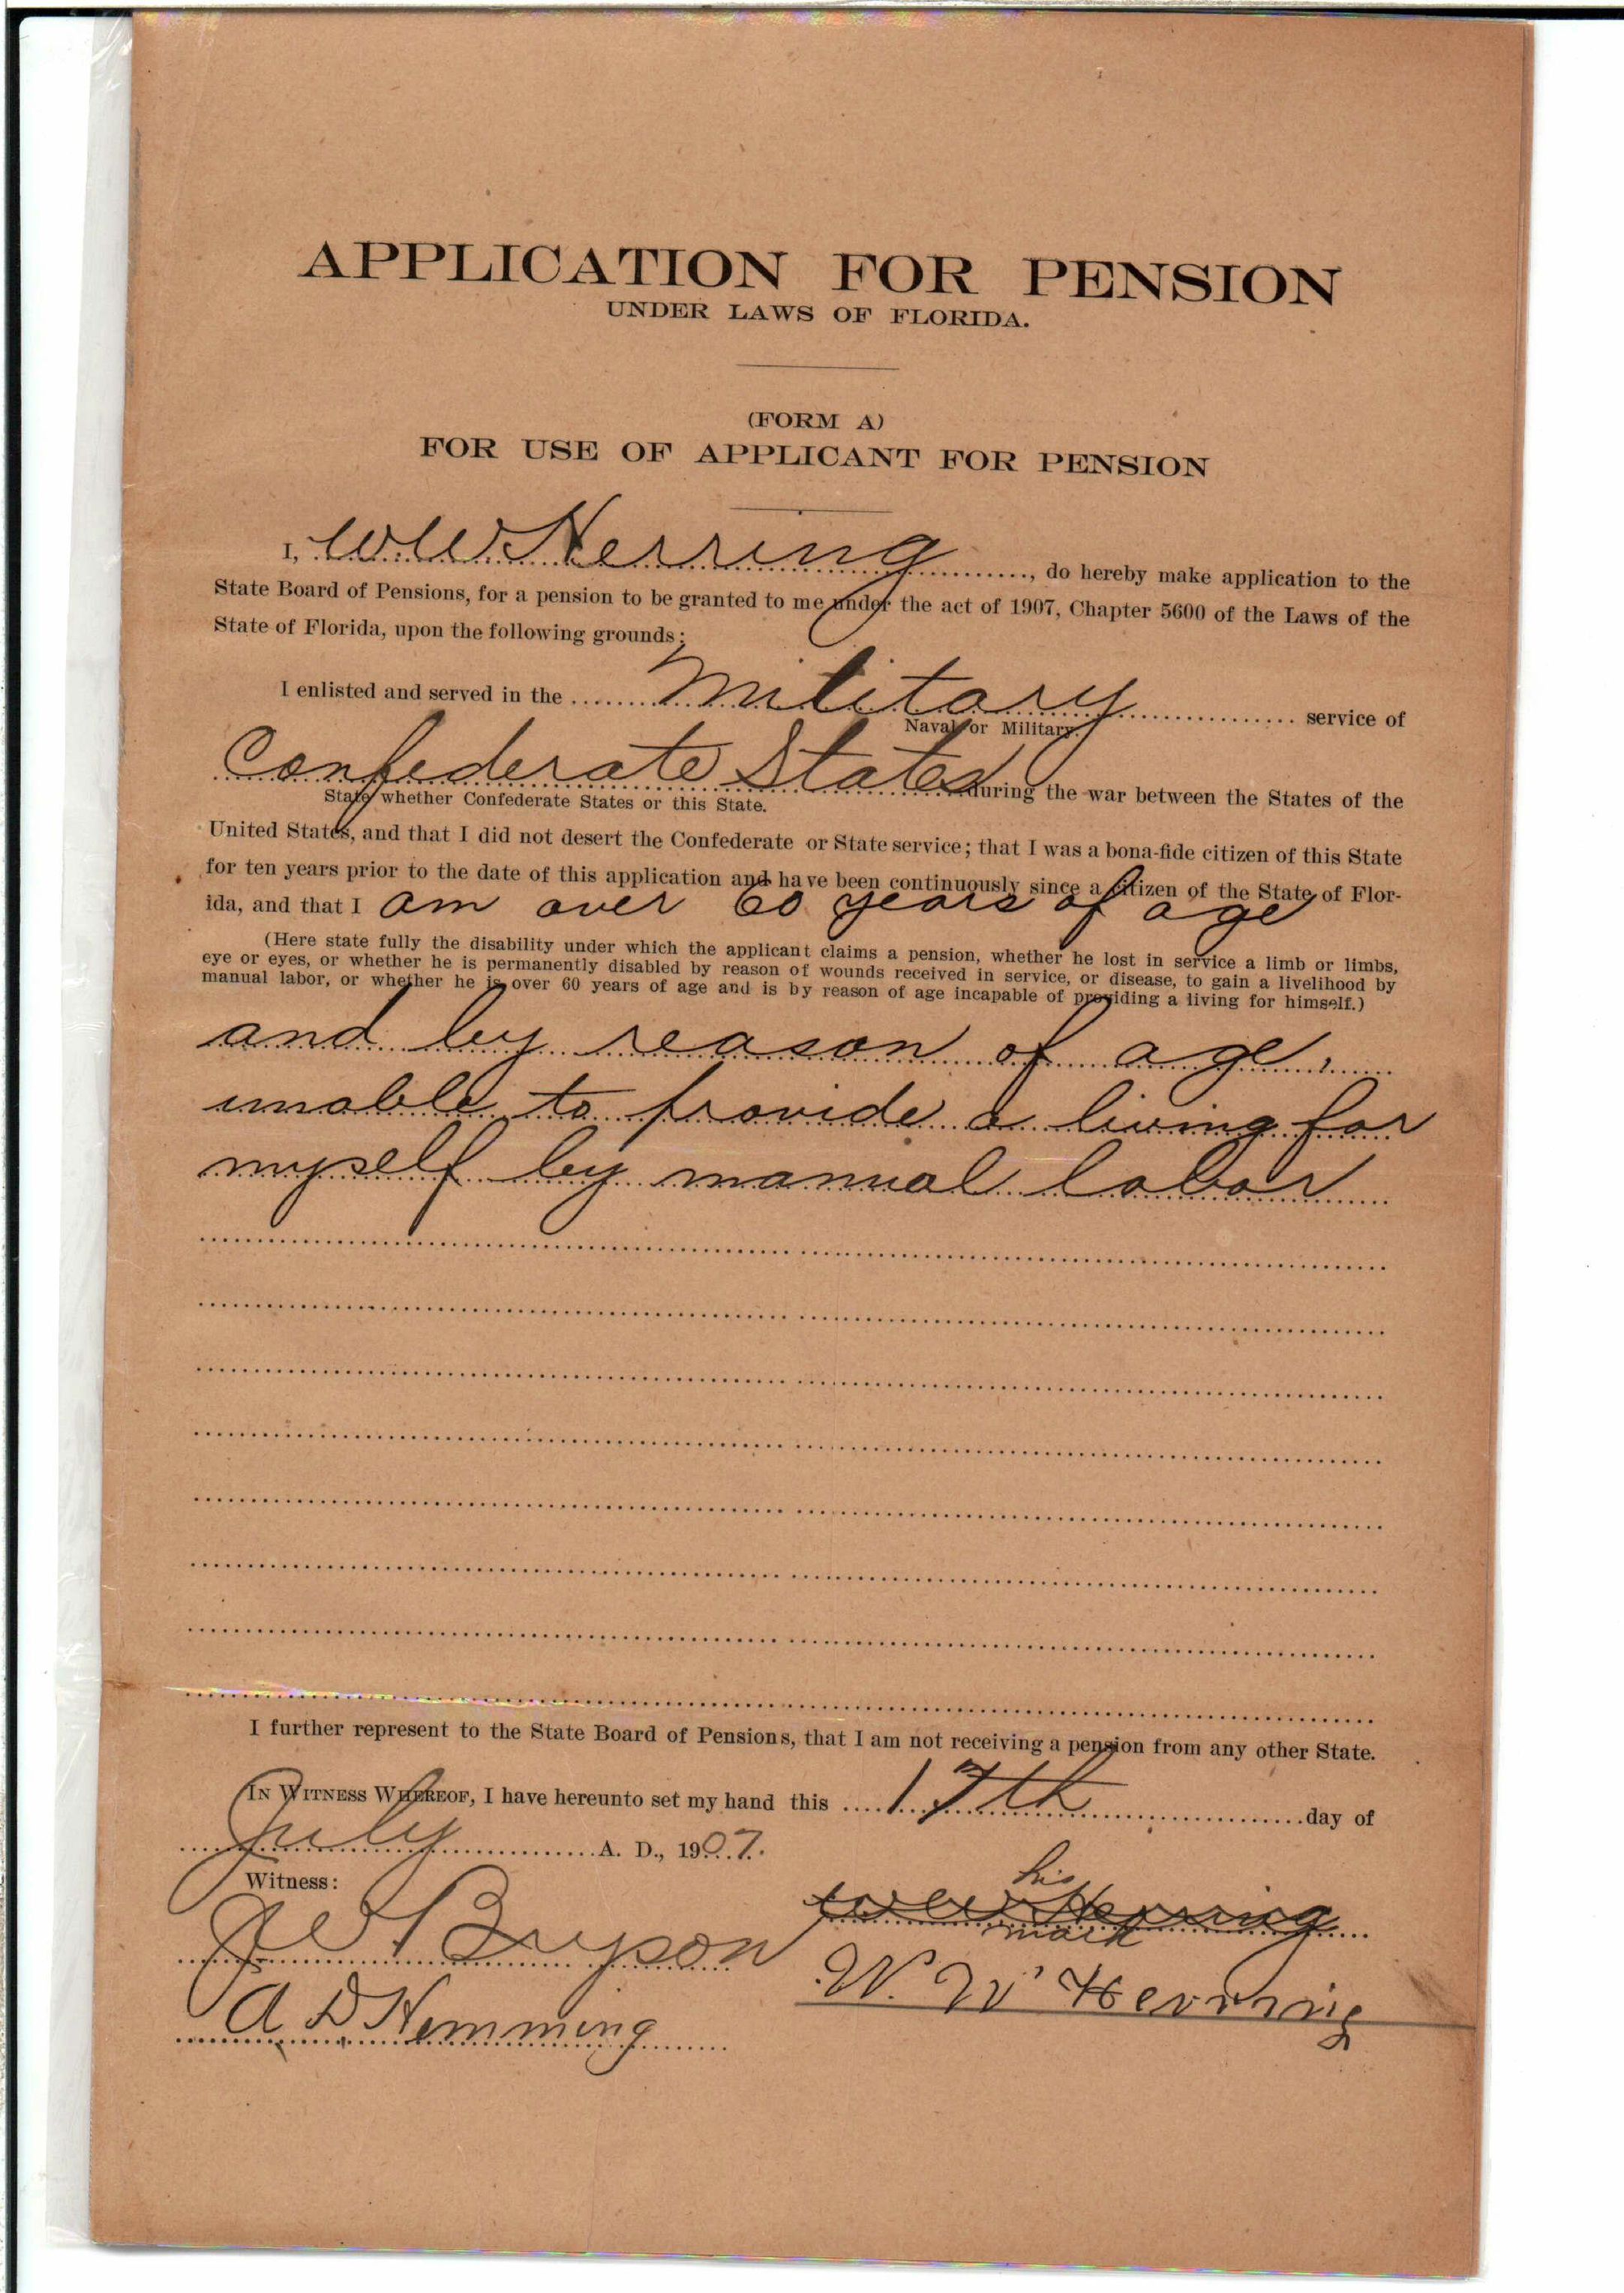 APPLICATION FOR PENSION
UNDER LAWS OF FLORIDA.
(FORM A)
FOR USE OF APPLICANT FOR PENSION
I, W W Herring, do hereby make application to the
State Board of Pensions, for a pension to be granted to me under the act of 1907, Chapter 5600 of the Laws of the
State of Florida, upon the following grounds:
I enlisted and served in the Military service of
Naval or Military.
Confederate States during the war between the States of the
State whether Confederate States or this State.
United States, and that I did not desert the Confederate or State service; that I was a bona-fide citizen of this State
for ten years prior to the date of this application and have been continuously since a citizen of the State of Flor-
ida, and that I am over 60 years of age
(Here state fully the disability under which the applicant claims a pension, whether he lost in service a limb or limbs,
eye or eyes, or whether he is permanently disabled by reason of wounds received in service, or disease, to gain a livelihood by
manual labor, or whether he is over 60 years of age and is by reason of age incapable of providing a living for himself.)
and by reason of age,
unable to provide a living for
myself by manual labor
I further represent to the State Board of Pensions, that I am not receiving a pension from any other State.
IN WITNESS WHEREOF, I have hereunto set my hand this 17th day of
July A. D., 1907.
Witness:
his
W W Herring
mark
J W Bryson
W. W Herring
A D Hemming